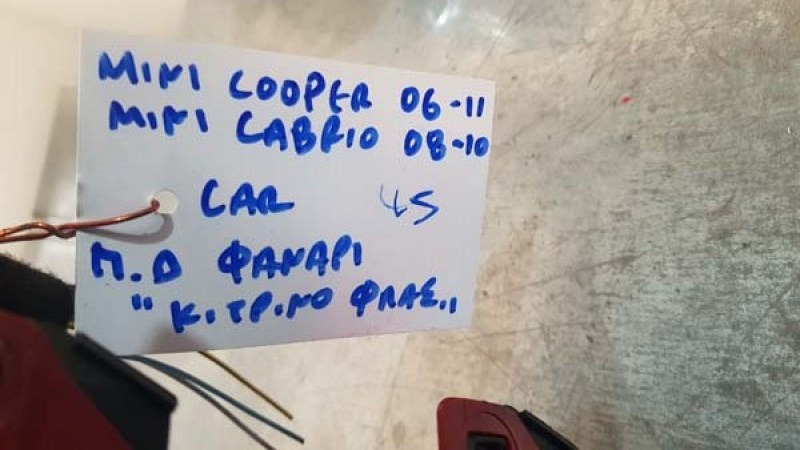 MINI COOPER 06-11
MINI CABRIO 08-10
CAR 45
Π.Δ ΦΑΝΑΡΙ
"Κ.ΤΡ.ΝΟ ΦΛΑΣ.,